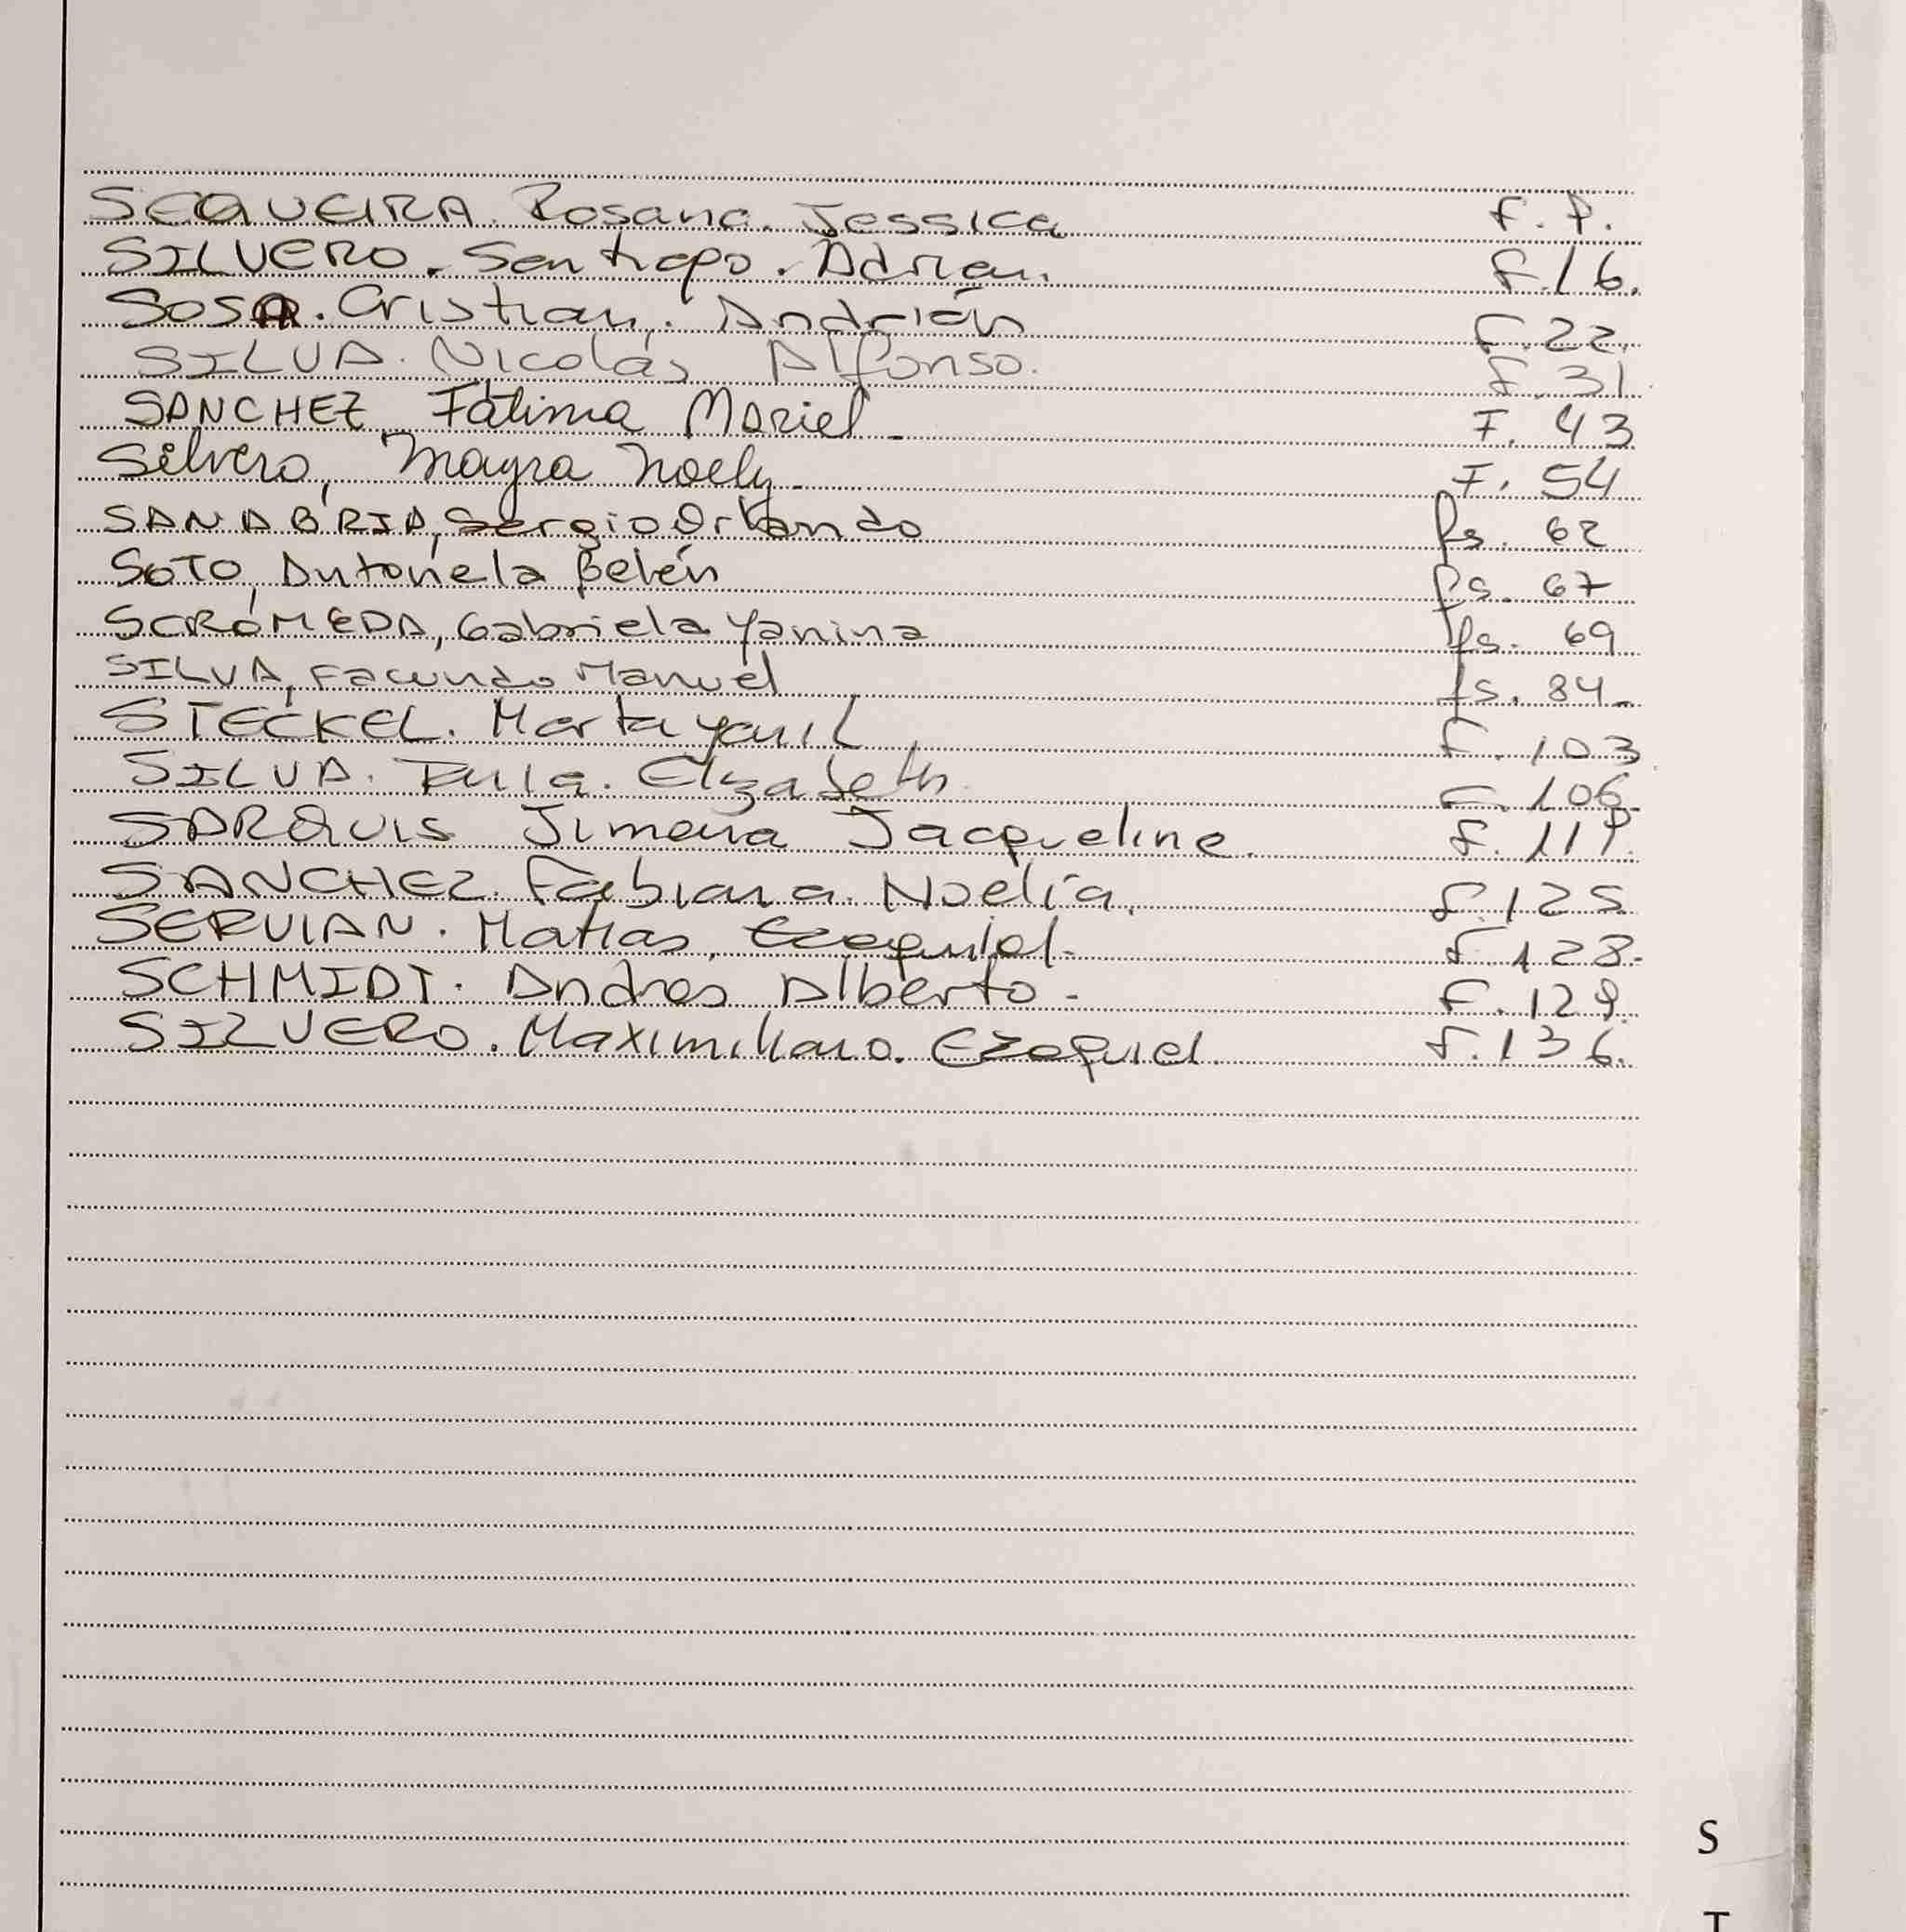 SEQUEIRA. Rosana. Jessica f. 9.
SILVERO. Santiago. Adrian. f. 16.
SOSA. Cristian. Andrián f. 22.
SILVA. Nicolás Alfonso. f. 31.
SANCHEZ Fátima Mariel - F. 43
Silvero, Mayra Noely - F. 54
SANABRIA, Sergio Orlando fs. 62
SOTO, Antonela Belén fs. 67
SCRÓMEDA, Gabriela Yanina fs. 69
SILVA, Facundo Manuel fs. 84-
STECKEL. Marta Yanil f. 103
SILVA. Elizabeth. F. 106.
SARQUIS Jimena Jacqueline. f. 119.
SANCHEZ. Fabiana. Noelía. f. 125
SERVIAN. Matías, Ezequiel- f. 128-
SCHMIDT. Andrés Alberto- F. 129.
SILVERO. Maximiliano. Ezequiel. f. 136.
S
T